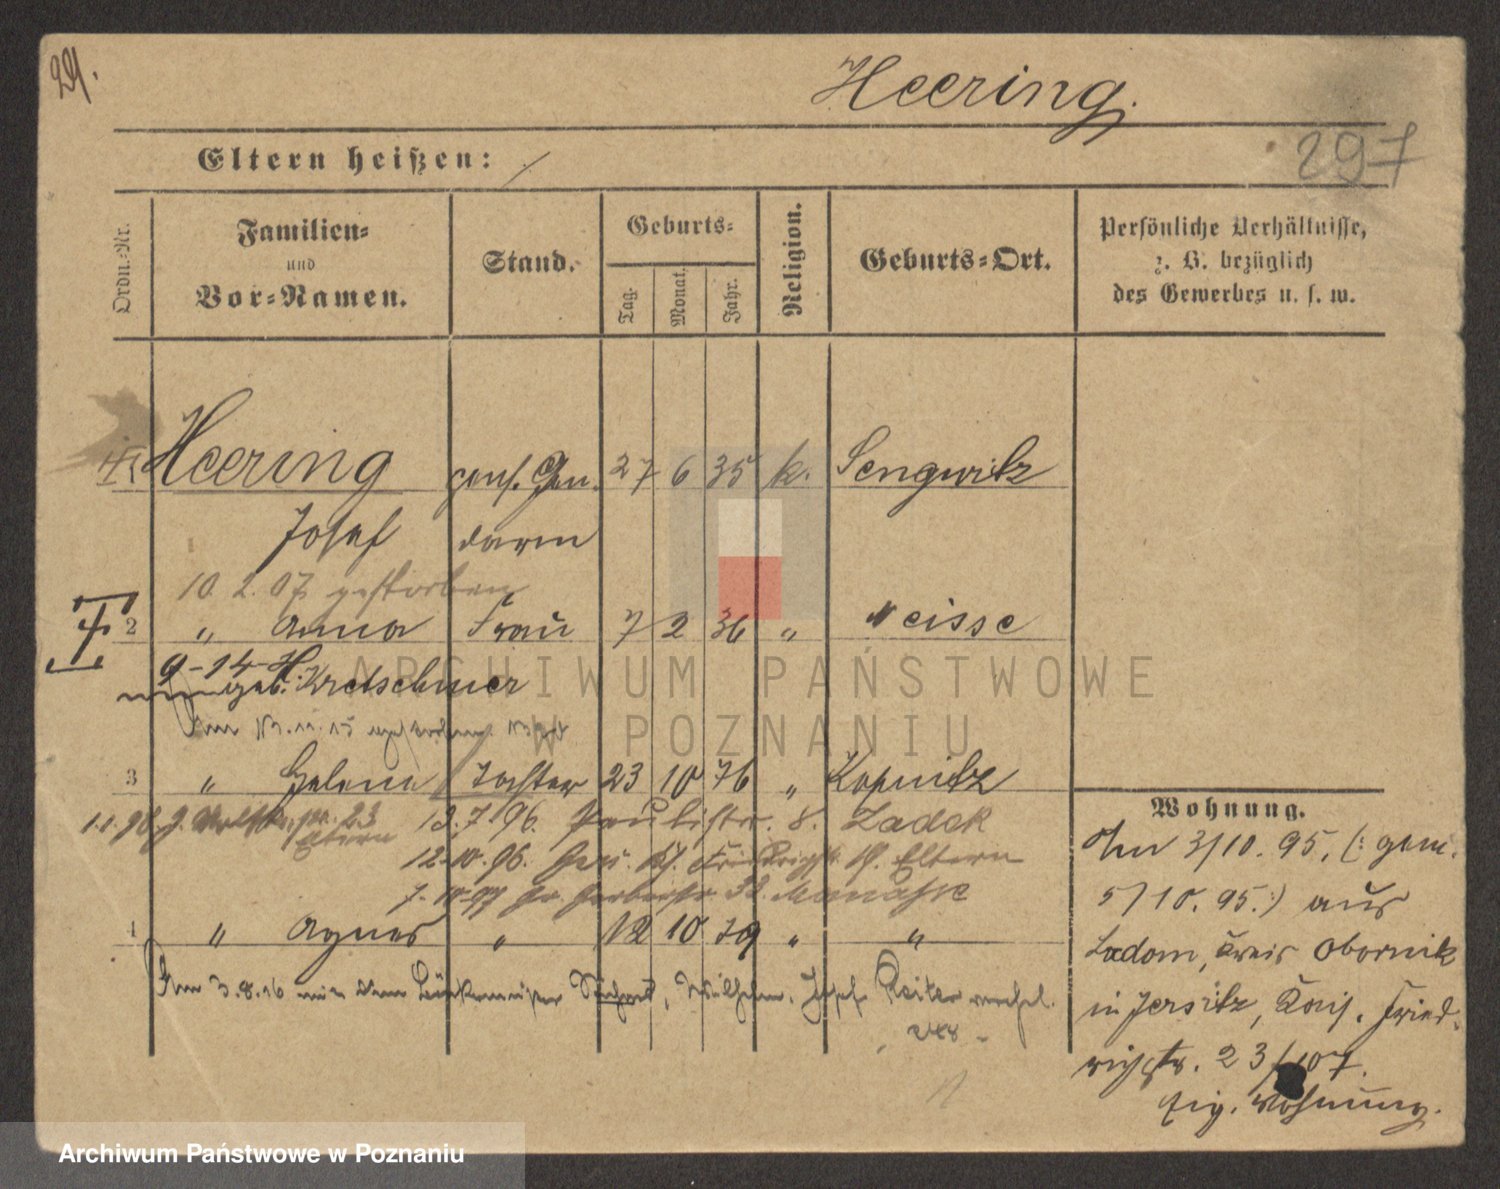 29.
Heering.
297
Eltern heißen: /
Ordn.-Nr.
Familien-
und
Vor-Namen.
Stand.
Geburts-
Tag.
Monat.
Jahr.
Religion.
Geburts-Ort.
Persönliche Verhältnisse,
z. B. bezüglich
des Gewerbes u. s. w.
Heering pens. Gen. 27 6 35 k. Sengwitz
Josef darm
10. 2. 07 gestorben
2 " Anna Frau 7 2 36 " Neisse
9-14-H.
geb. Kretschmer
Am gestorben
3 " Helene Tochter 23 10 76 " Kopnitz
1.1.98 23 Eltern
13.7.96. Paulistr. 8. Zadek
12.10.96. Friedrichstr. Eltern
Gerberstr. Manasse
4 " Agnes " 12 10 79 " "
Am 3.8.16 mit dem Wilhelm, Josef Reiter verehel.
Wohnung.
Am 3/10. 95. (: gem.
5/10. 95.:) aus
Ladom, Kreis Obornik
in Jersitz, Kais. Fried-
richstr. 23/107.
Eig. Wohnung.
ARCHIWUM PAŃSTWOWE
W POZNANIU
Archiwum Państwowe w Poznaniu